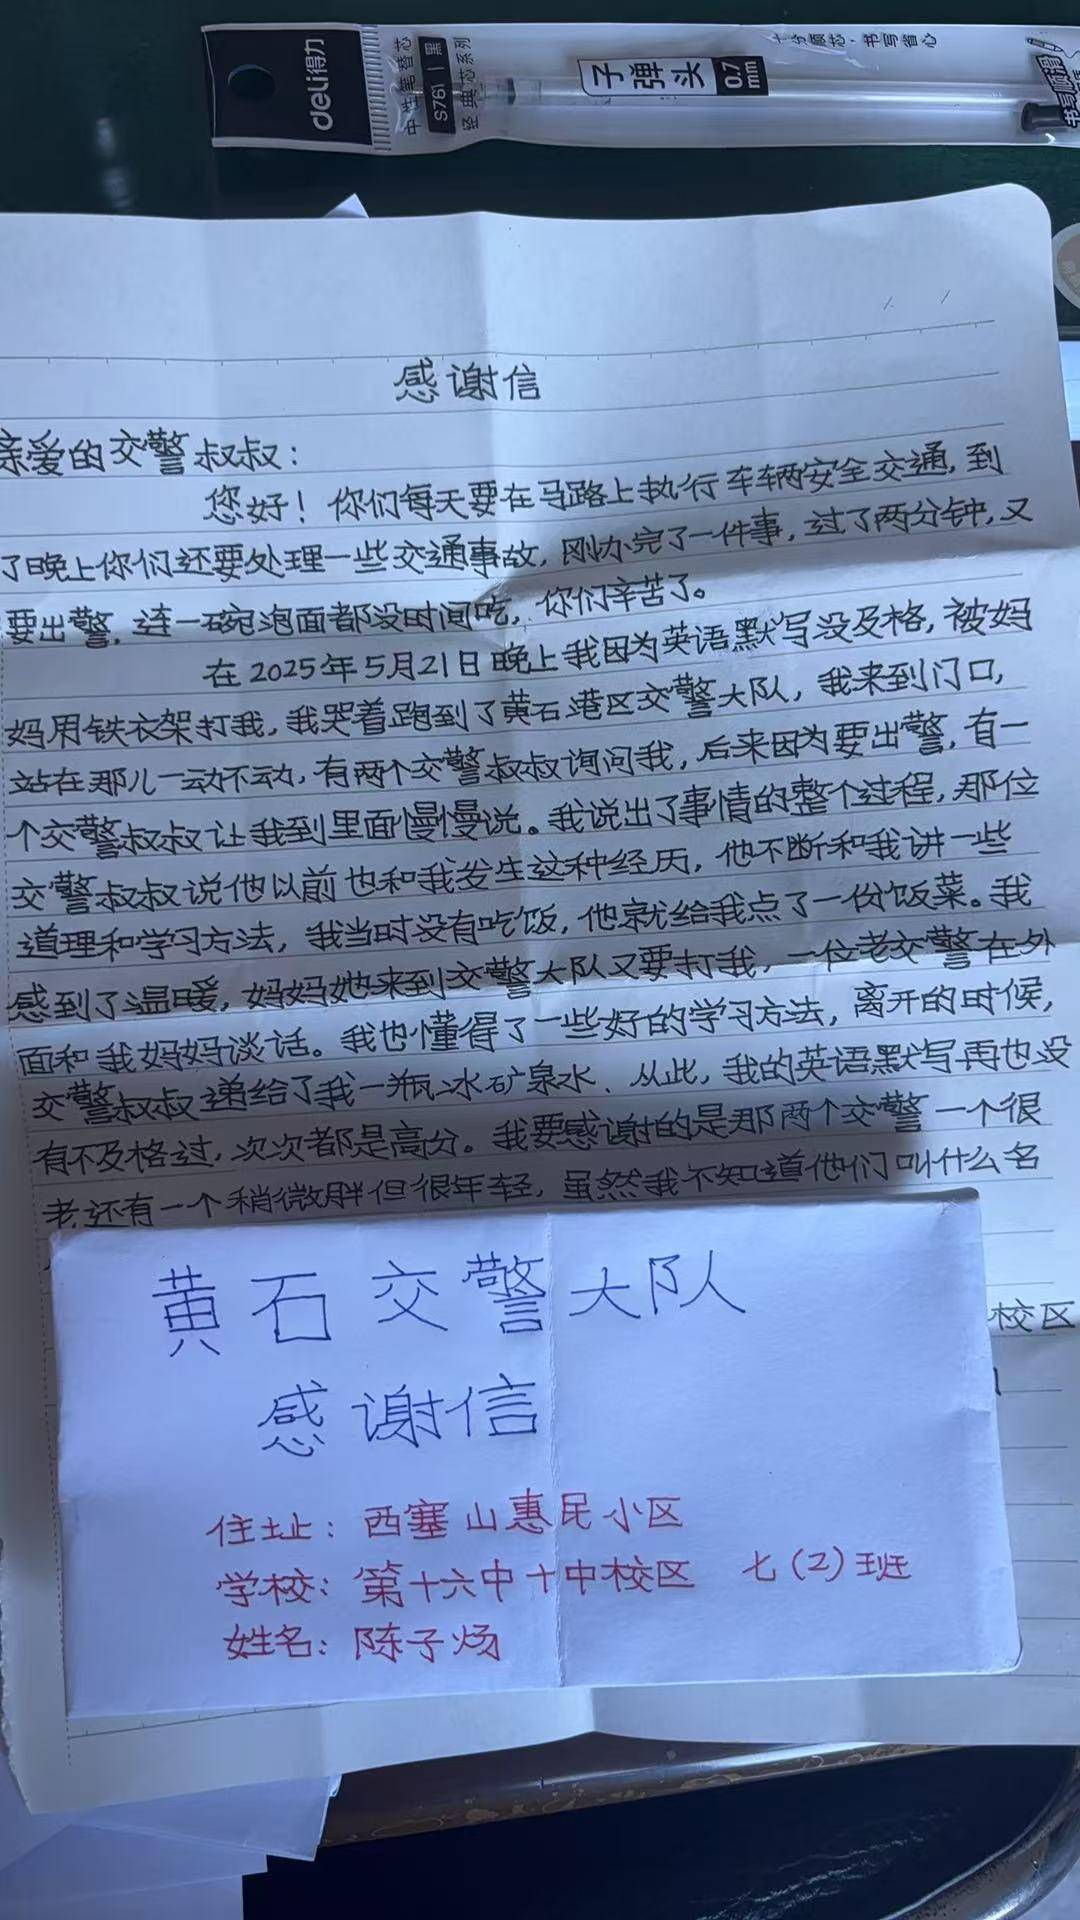 deli得力
中性笔替芯
S761 黑
经典芯系列
子弹头
0.7
mm
书写省心
感谢信
亲爱的交警叔叔：
您好！你们每天要在马路上执行车辆安全交通，到
了晚上你们还要处理一些交通事故，刚办完了一件事，过了两分钟，又
要出警，连一碗泡面都没时间吃，你们辛苦了。
在2025年5月21日晚上我因为英语默写没及格，被妈
妈用铁衣架打我，我哭着跑到了黄石港区交警大队，我来到门口，
站在那儿一动不动，有两个交警叔叔询问我，后来因为要出警，有一
个交警叔叔让我到里面慢慢说。我说出了事情的整个过程，那位
交警叔叔说他以前也和我发生这种经历，他不断和我讲一些
道理和学习方法，我当时没有吃饭，他就给我点了一份饭菜。我
感到了温暖，妈妈她来到交警大队又要打我，一位老交警在外
面和我妈妈谈话。我也懂得了一些好的学习方法，离开的时候，
交警叔叔递给了我一瓶冰矿泉水、从此，我的英语默写再也没
有不及格过，次次都是高分。我要感谢的是那两个交警一个很
老还有一个稍微胖但很年轻，虽然我不知道他们叫什么名
校区
黄石交警大队
感谢信
住址：西塞山惠民小区
学校：第十六中十中校区 七（2）班
姓名：陈子炀